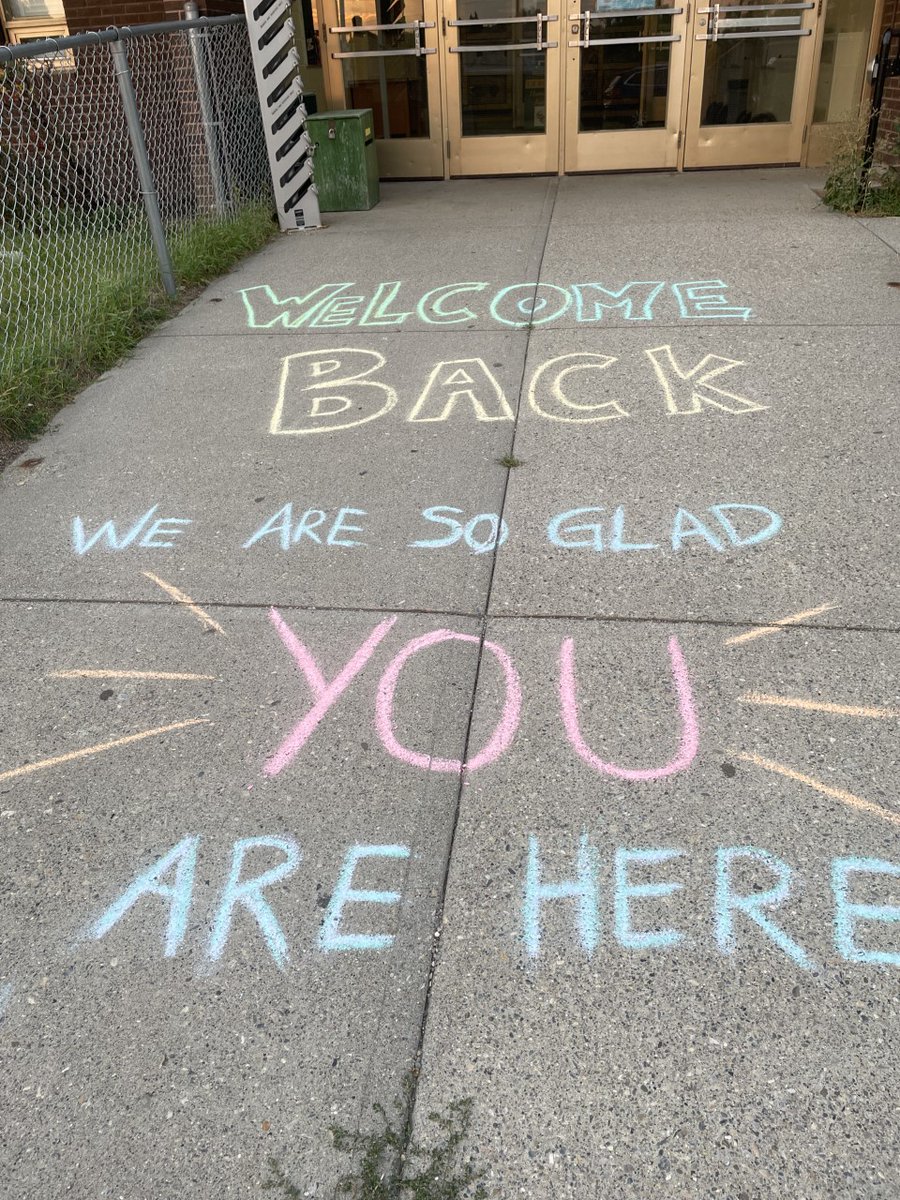 WELCOME
BACK
WE ARE SO GLAD
YOU
ARE HERE